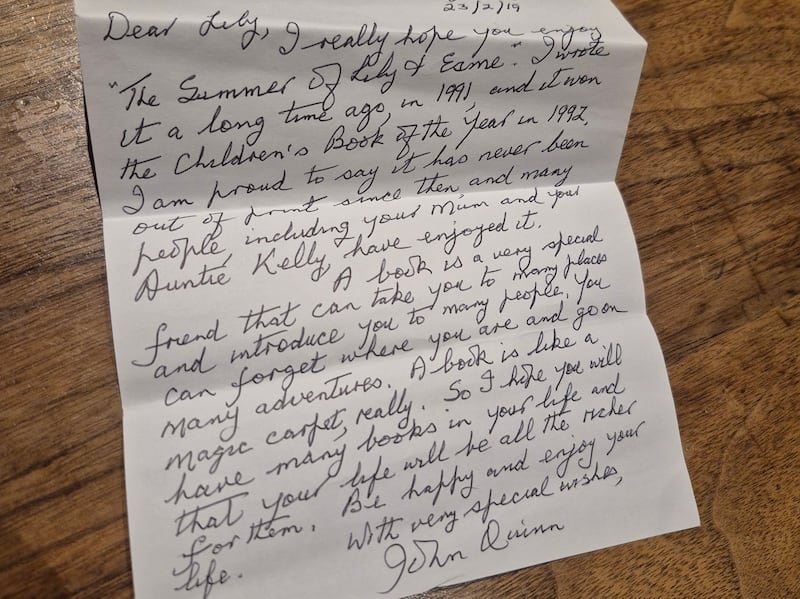 23/2/19
Dear Lily, I really hope you enjoy
"The Summer of Lily & Esme". I wrote
it a long time ago, in 1991, and it won
the Children's Book of the Year in 1992.
I am proud to say it has never been
out of print since then, and many
people, including your Mum and your
Auntie Kelly, have enjoyed it.
A book is a very special
friend that can take you to many places
and introduce you to many people. You
can forget where you are and go on
many adventures. A book is like a
magic carpet, really. So I hope you will
have many books in your life and
that your life will be all the richer
for them. Be happy and enjoy your
life.
With very special wishes,
John Quinn